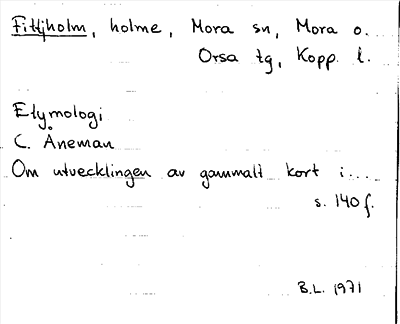 Fittjholm, holme, Mora sn, Mora o.
Orsa tg, Kopp. l.
Etymologi
C. Åneman
Om utvecklingen av gammalt kort i....
s. 140 f.
B.L. 1971